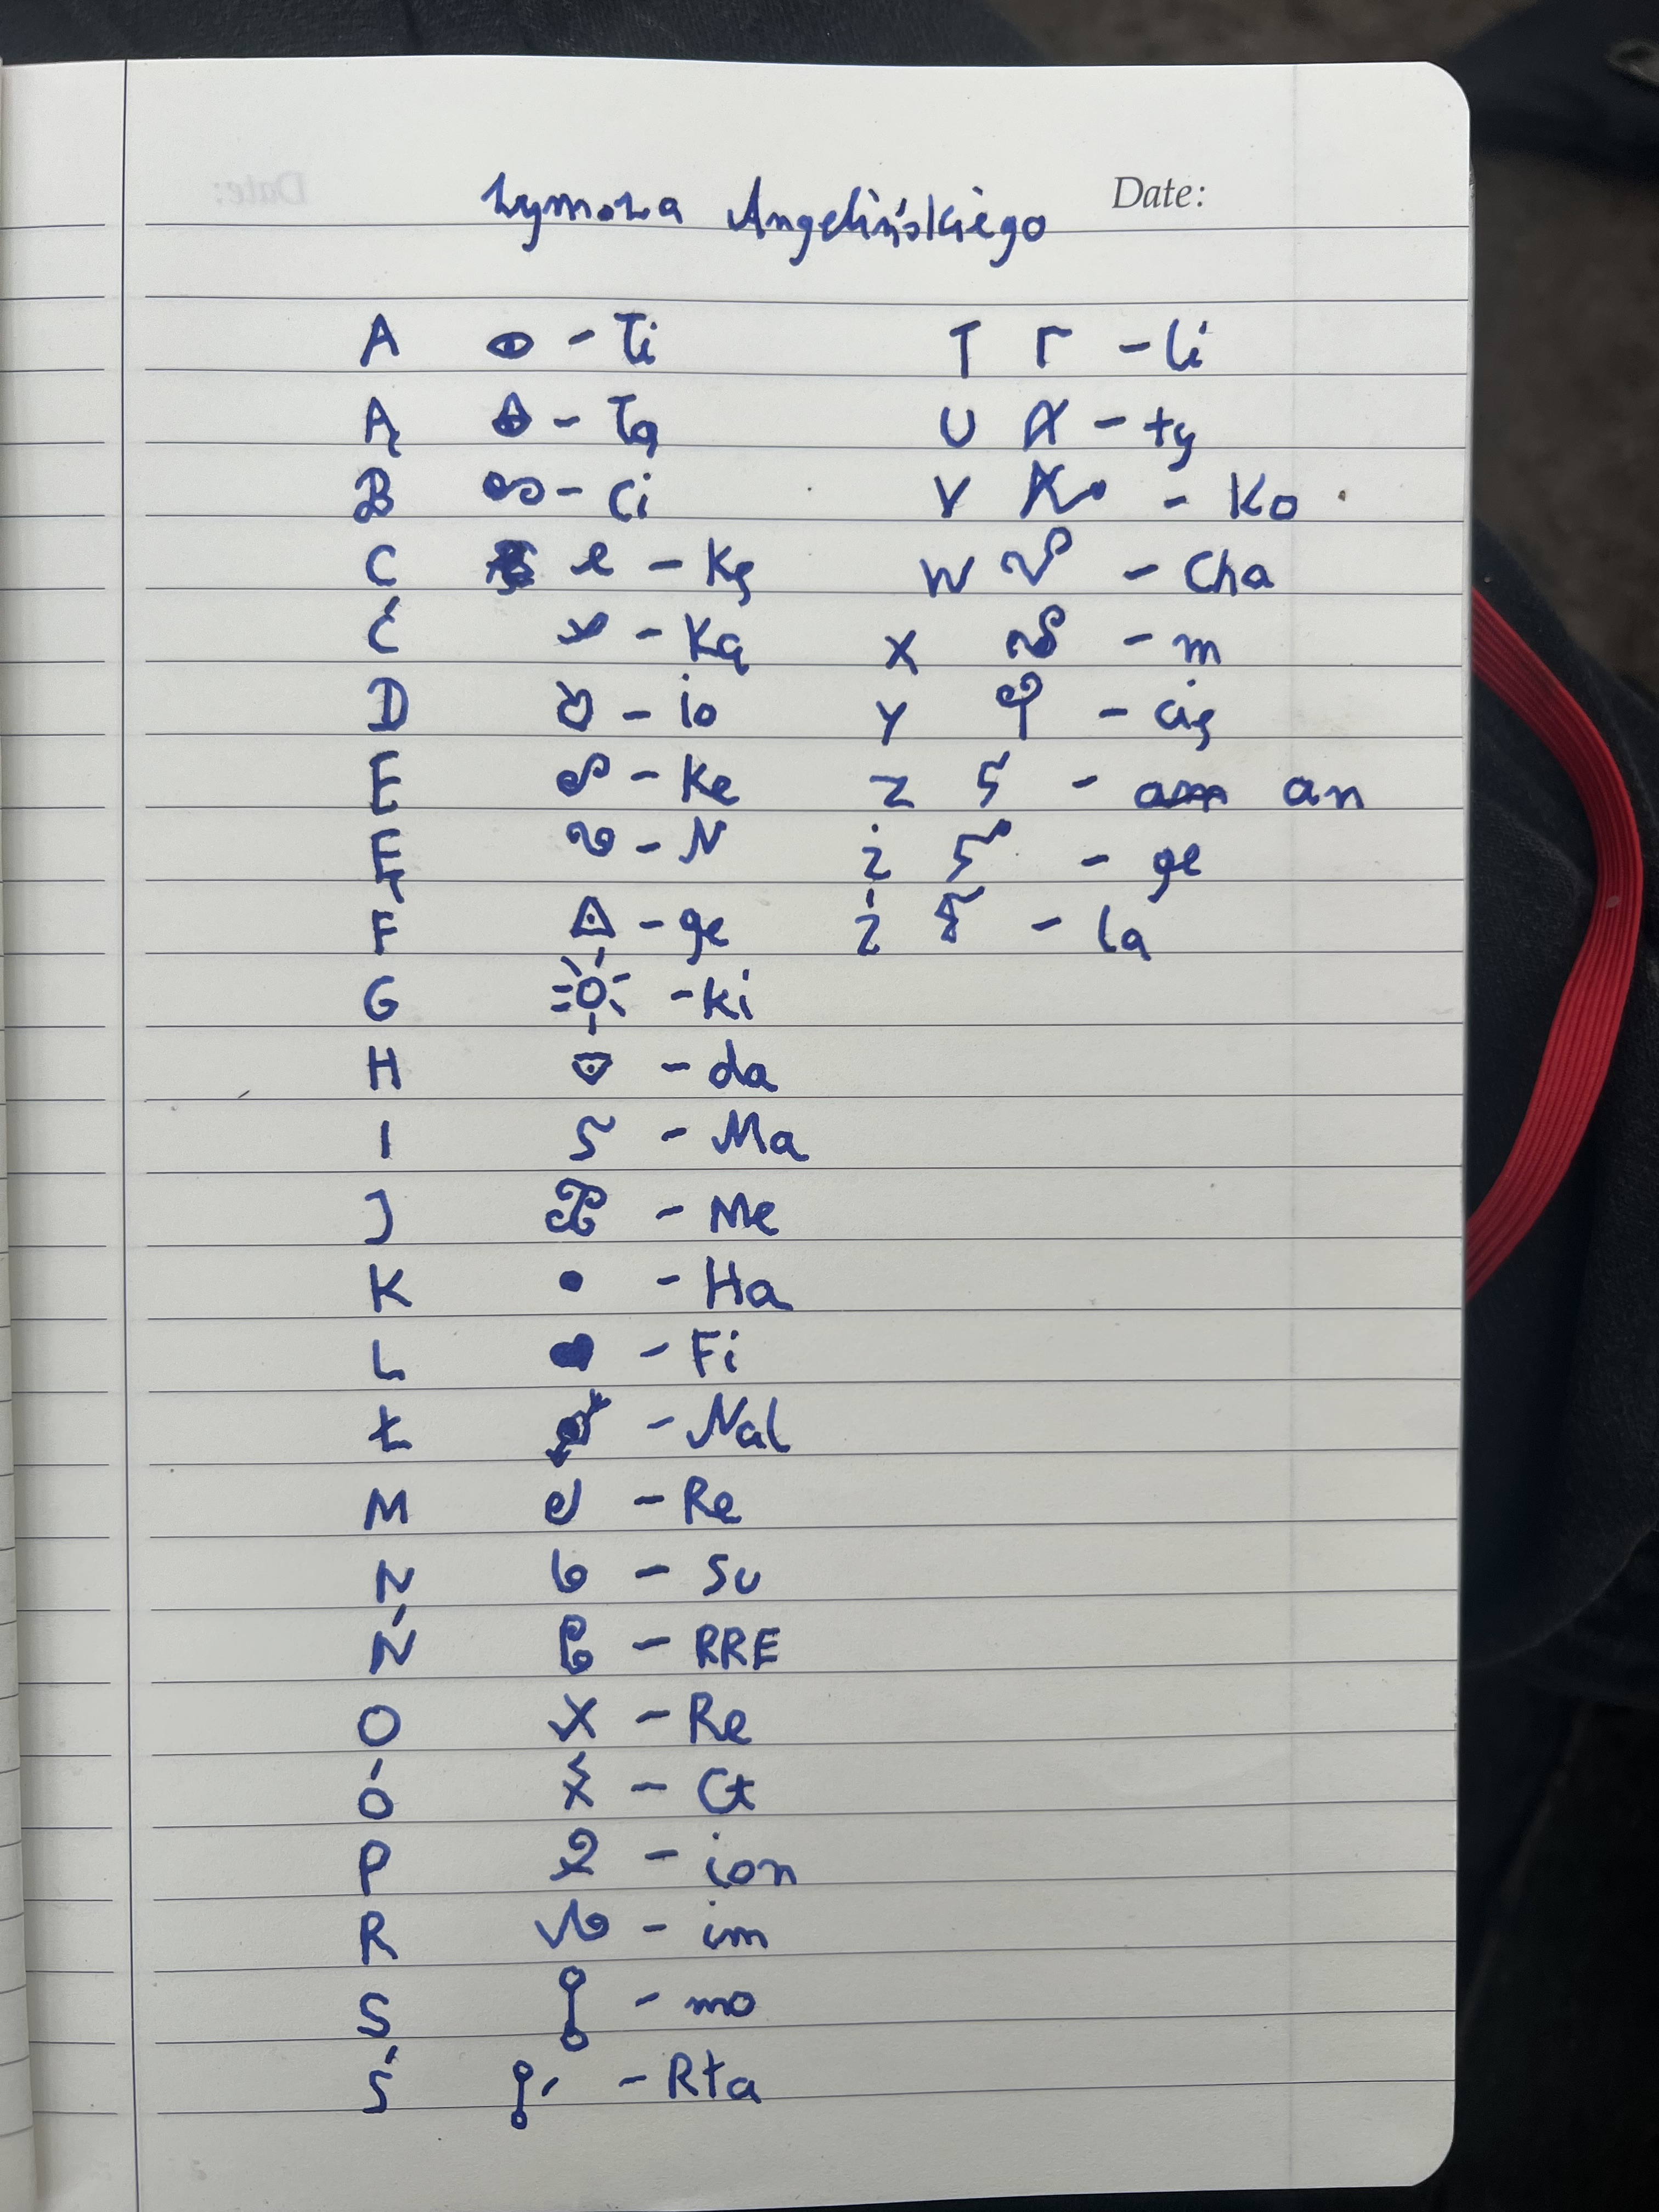 Date:
Angelińskiego
A - Ti T - li
Ą - Tą U - ty
B - Ci V - Ko
C - Kę W - Cha
Ć - Ką X - m
D - io Y - cię
E - Ke Z - an
Ę - N Ż - ge
F - ge Ź - la
G - ki
H - da
I - Ma
J - Me
K - Ha
L - Fi
Ł - Nal
M - Re
N - Su
Ń - RRE
O - Re
Ó - Ct
P - ion
R - im
S - mo
Ś - Rta